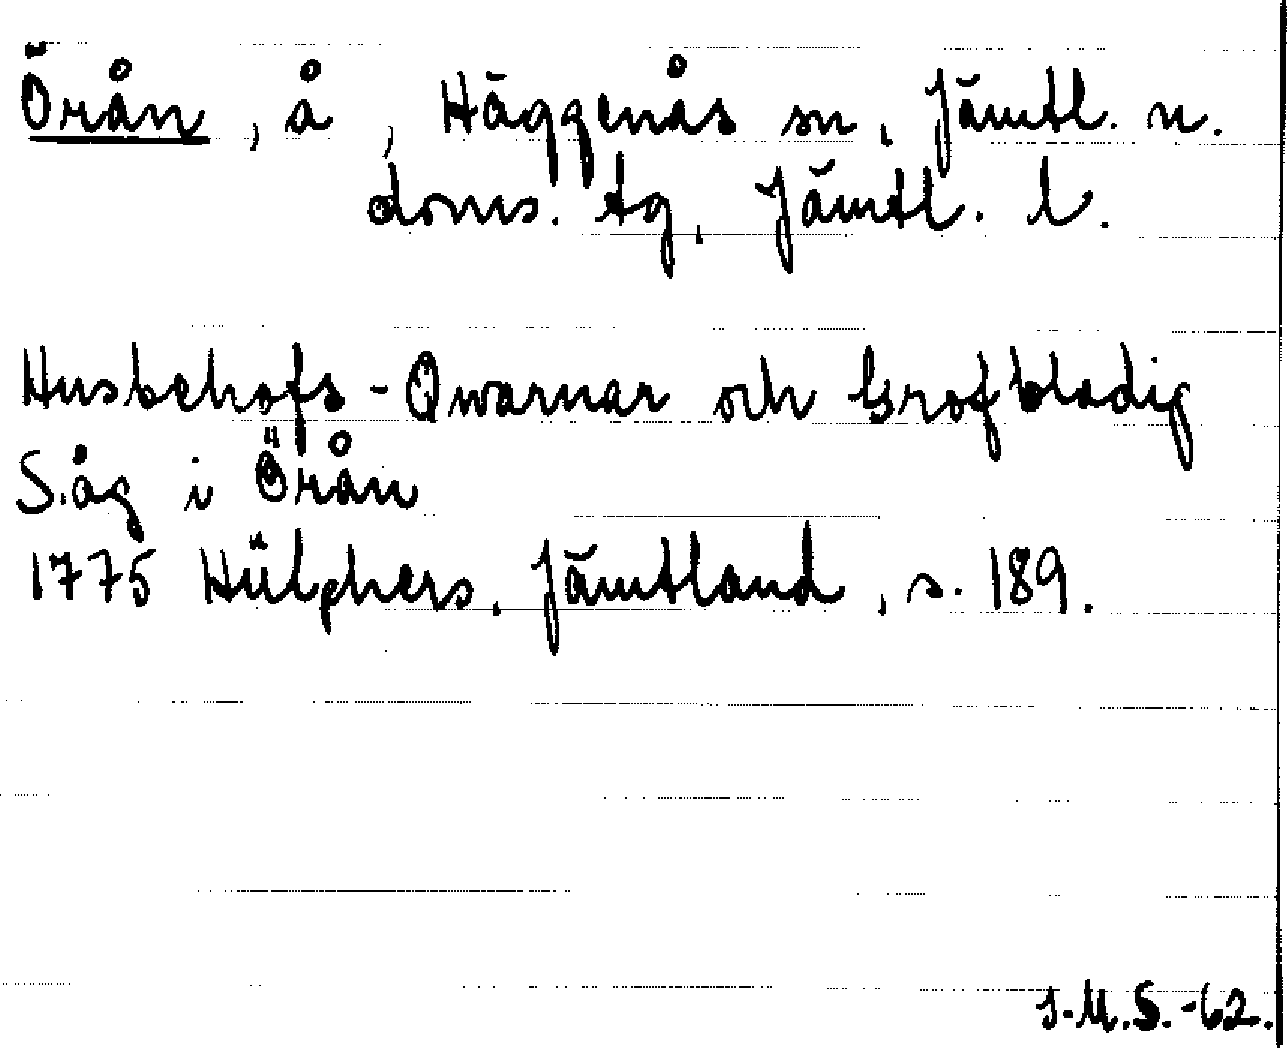 Örån, å, Häggenås sn, Jämtl. n.
doms. tg, Jämtl. l.
Husbehofs-Qwarnar och Grofbladig
Såg i Örån
1775 Hülphers, Jämtland, s. 189.
I.M.S.-62.